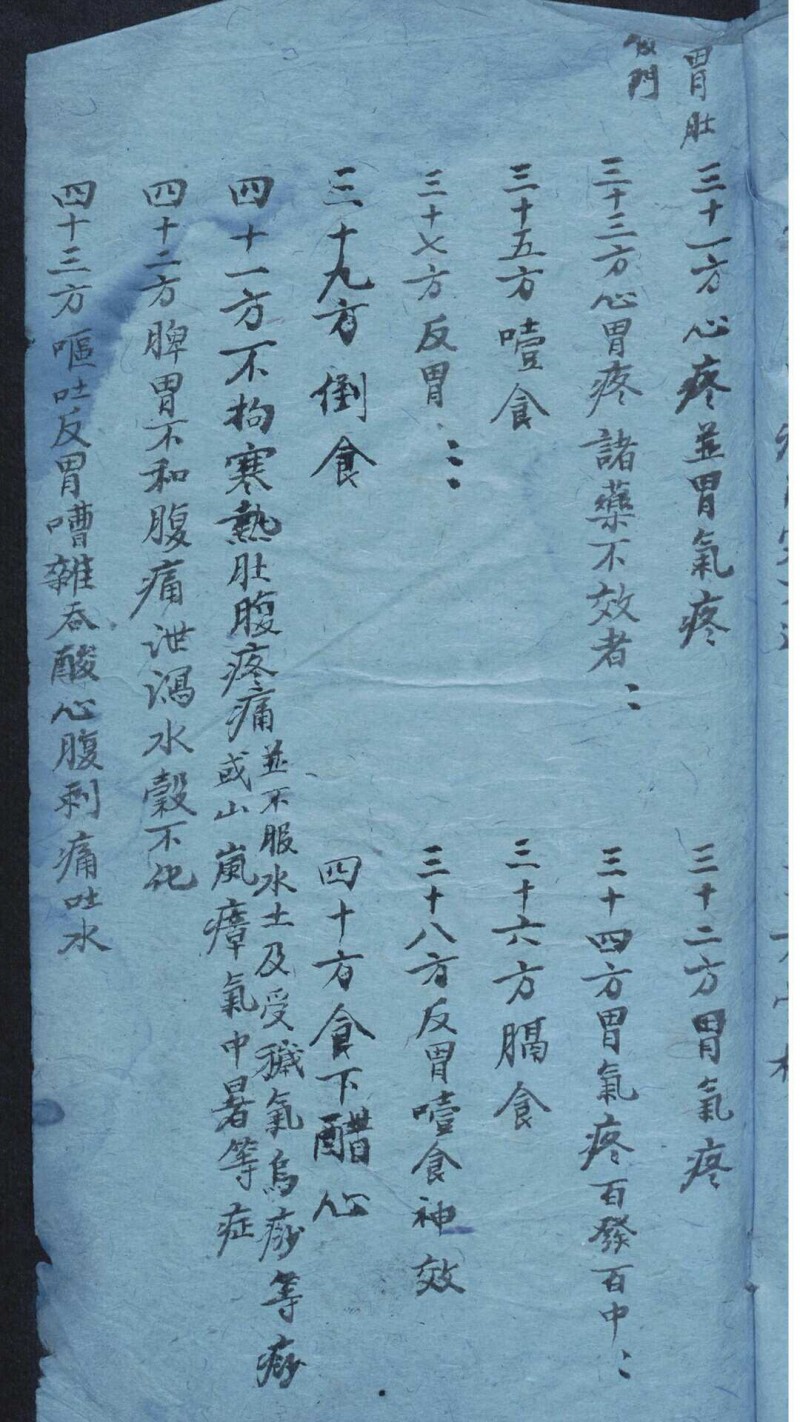 胃肚
門
三十一方心疼並胃氣疼
三十二方胃氣疼
三十三方心胃疼諸藥不效者：
三十四方胃氣疼百發百中：
三十五方噎食
三十六方膈食
三十七方反胃：：
三十八方反胃噎食神效
三十九方倒食
四十方食下醋心
四十一方不拘寒熱肚腹疼痛並不服水土及受穢氣烏痧等痧
或山嵐瘴氣中暑等症
四十二方脾胃不和腹痛泄瀉水穀不化
四十三方嘔吐反胃嘈雜吞酸心腹刺痛吐水